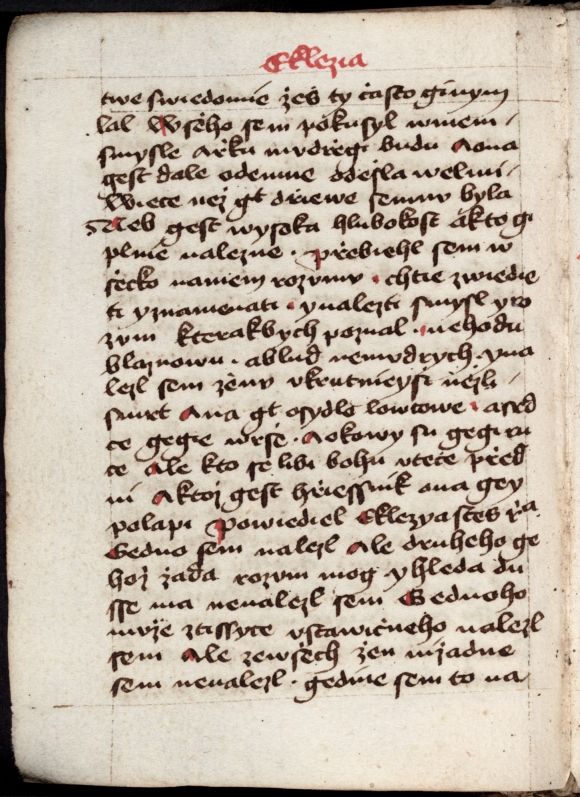 Eklezia
twe swiedomie żes ty ċasto ginym
lal Wṡeho sem pokusyl wmem
smysle Arku mvdregi budu Aona
gest dale odemne odeṡla welmi
Wiece neż gt dṙiewe semnv byla
Neb gest wysoka hlubokost akto gi
plnie nalezne · pṙebiehl sem w
ṡecko namem rozvmv · chtie zwiedie
ti yznamenati · ynalezti smysl yro
zvm kterakbych poznal · nehodu
blaznowu · ablud nemvdrych · yna
lezl sem żenv vkrutnieyṡi neżli
smrt Ana gt osydlo lowcowe · asrd
ce gegie wrṡe · Aokowy su gegi ru
ce Ale kto se libi bohu vteċe pṙed
ni Aktoż gest hṙiessnik ona gey
polapi Powiediel Eklezyastes ṙa
Gedno sem nalezl Ale druheho ge
hoż żada rozvm mog yhleda du
sse ma nenalezl sem Gednoho
mvże ztissyce vstawiċneho nalezl
sem Ale zewṡech żen niżadne
sem nenalezl · gedine sem to na